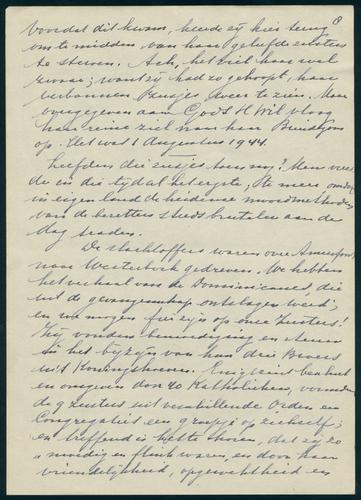 8
voordat dit kwam, keerde zij hier terug
om te midden van haar geliefde zusters
te sterven. Ach, het viel haar wel
zwaar; want zij had zo gehoopt, haar
verbannen Zusjes weer te zien. Maar
overgegeven aan God's H. Wil vloog
haar reine ziel naar haar Bruidegom
op. Het was 1 Augustus 1944.
Leefden die zusjes toen nog? Men vrees-
de in die tijd al het ergste, te meer omdat
in eigen land de heidense moordmethoden
van de bezetters steeds brutaler aan de
dag traden.
De slachtoffers waren over Amersfoort
naar Westerbork gedreven. We hebben
het verhaal van de Dominicanes, die
uit de gevangenschap ontslagen werd;
en we mogen fier zijn op onze Zusters!
Zij vonden bemoediging en steun
in het bijzijn van hun drie Broers
uit Koningshoeven. Enigszins beschut
en omgeven door 40 Katholieken, vormden
de 9 zusters uit verschillende Orden en
Congregaties een groepje op zichzelf;
en treffend is het te horen, dat zij zo
moedig en flink waren, en door haar
vriendelijkheid, opgewektheid en